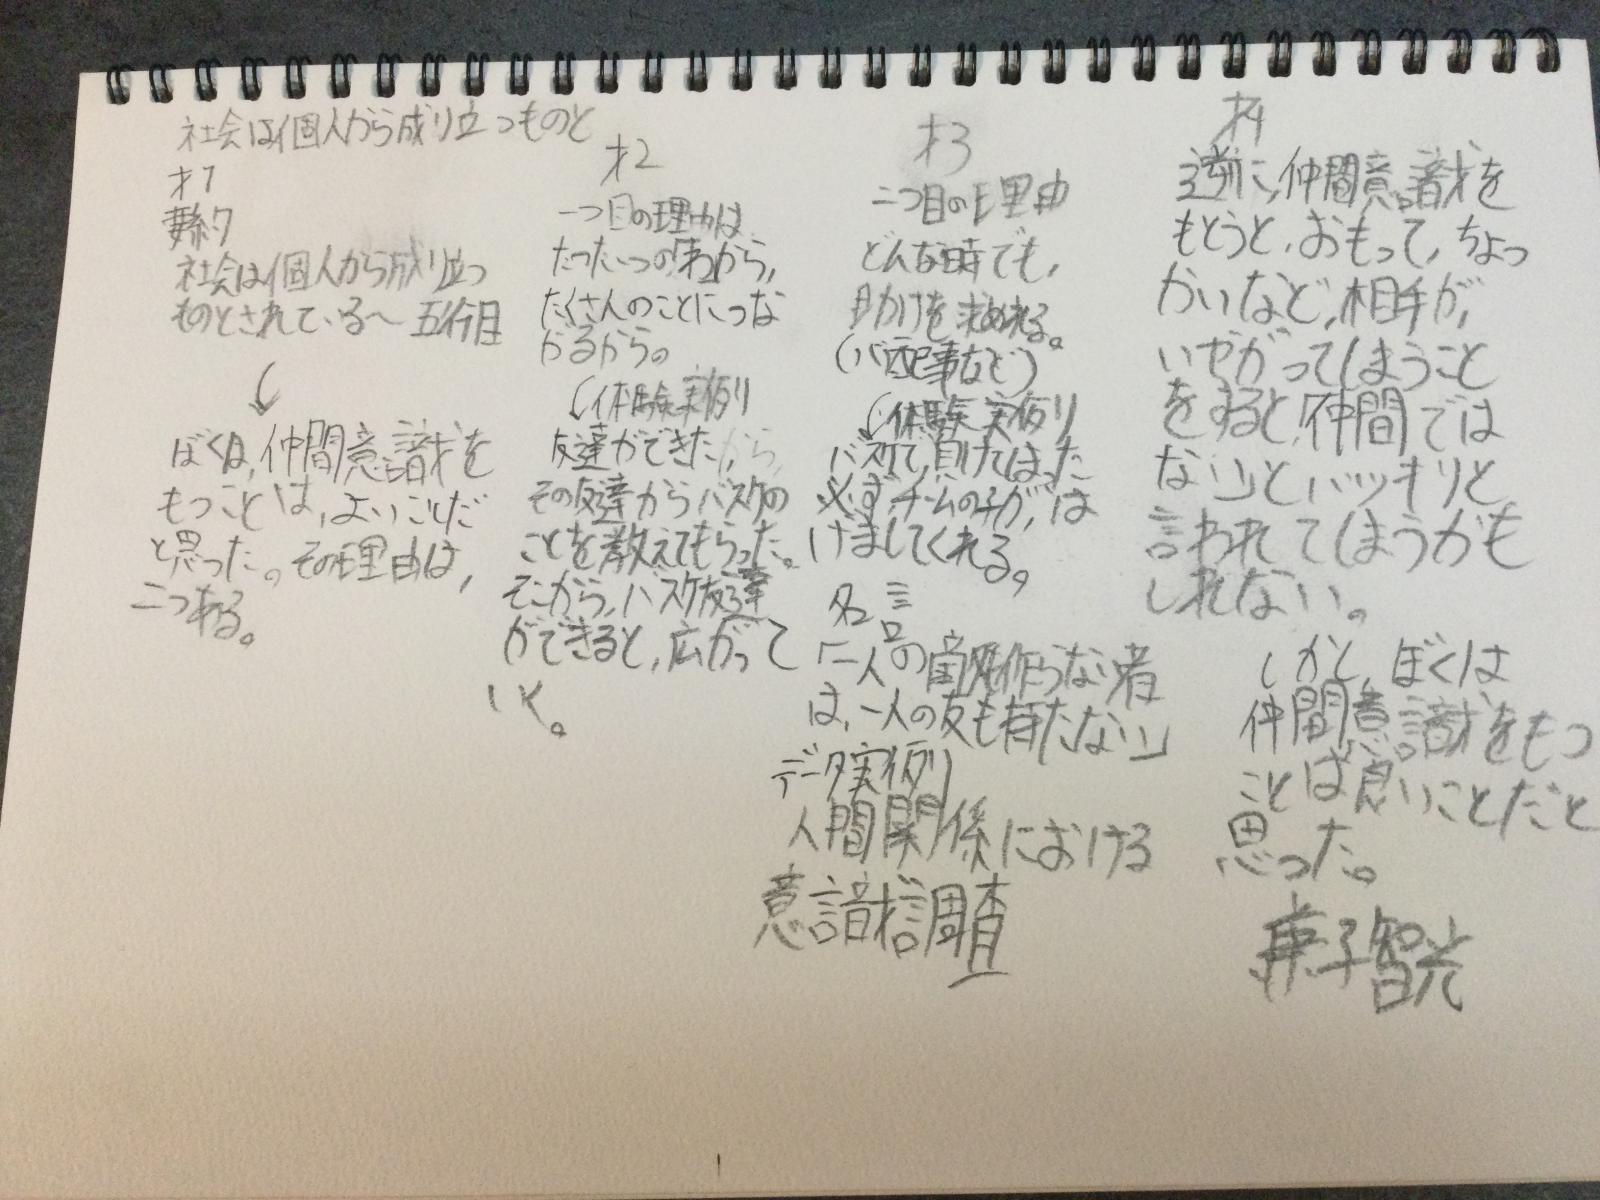 社会は個人から成り立つものと
才1
要約
社会は個人から成り立つ
ものとされている〜五行目
ぼくは,仲間意識を
もつことは,よいことだ
と思った。その理由は,
二つある。
才2
一つ目の理由は
たった一つの和から,
たくさんのことにつな
がるから。
体験実例
友達ができた,から,
その友達からバスケの
ことを教えてもらった。
そこから,バスケ友達
ができると,広がって
いく。
才3
二つ目の理由
どんな時でも,
助けを求めれる。
(心配事など)
体験実例
バスケで,負けてはった
必ず,チームの子が,は
げましてくれる。
名言
「一人の 作らない者
は,一人の友も持たない」
データ実例
人間関係における
意識調査
才4
逆に,仲間意識を
もとうと,おもって,ちょっ
かいなど,相手が,
いやがってしまうこと
をすると,「仲間では
ない」とハッキリと
言われてしまうかも
しれない。
しかし,ぼくは
仲間意識をもつ
ことは良いことだと
思った。
子智光